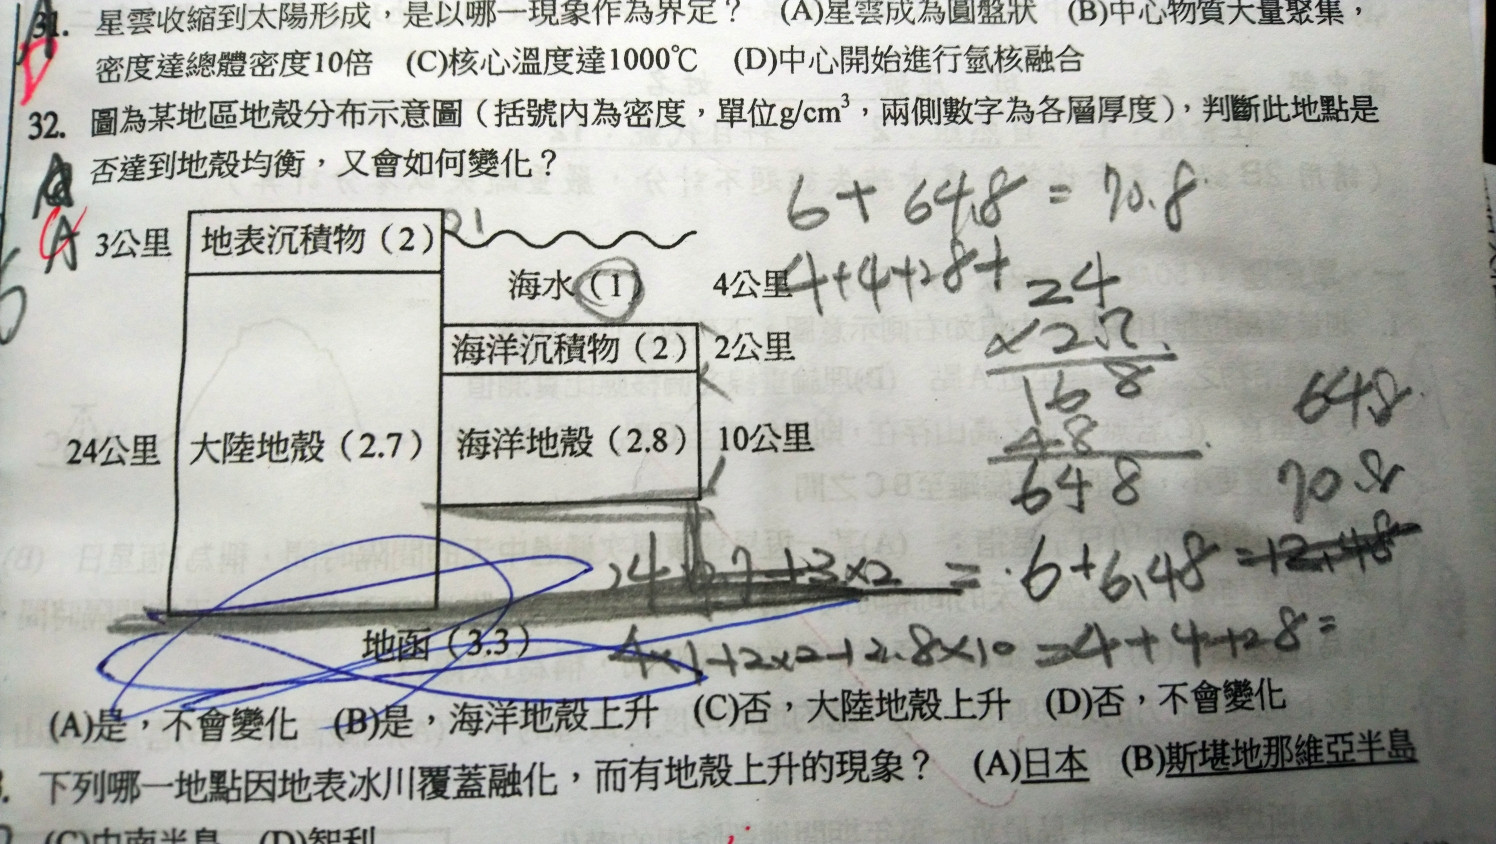 31. 星雲收縮到太陽形成，是以哪一現象作為界定？ (A)星雲成為圓盤狀 (B)中心物質大量聚集，
D
密度達總體密度10倍 (C)核心溫度達1000℃ (D)中心開始進行氫核融合
32. 圖為某地區地殼分布示意圖（括號內為密度，單位g/cm³，兩側數字為各層厚度），判斷此地點是
否達到地殼均衡，又會如何變化？
A
6+64.8=70.8
3公里 地表沉積物（2）
海水（1） 4公里
4+4+28+
24
×2.7
168
48
648
海洋沉積物（2） 2公里
648
24公里 大陸地殼（2.7） 海洋地殼（2.8） 10公里
70.8
24×2.7+3×2=6+6.48=12.48
地函（3.3）
4×1+2×2+2.8×10=4+4+28=
(A)是，不會變化 (B)是，海洋地殼上升 (C)否，大陸地殼上升 (D)否，不會變化
下列哪一地點因地表冰川覆蓋融化，而有地殼上升的現象？ (A)日本 (B)斯堪地那維亞半島
(C)中南半島 (D)智利